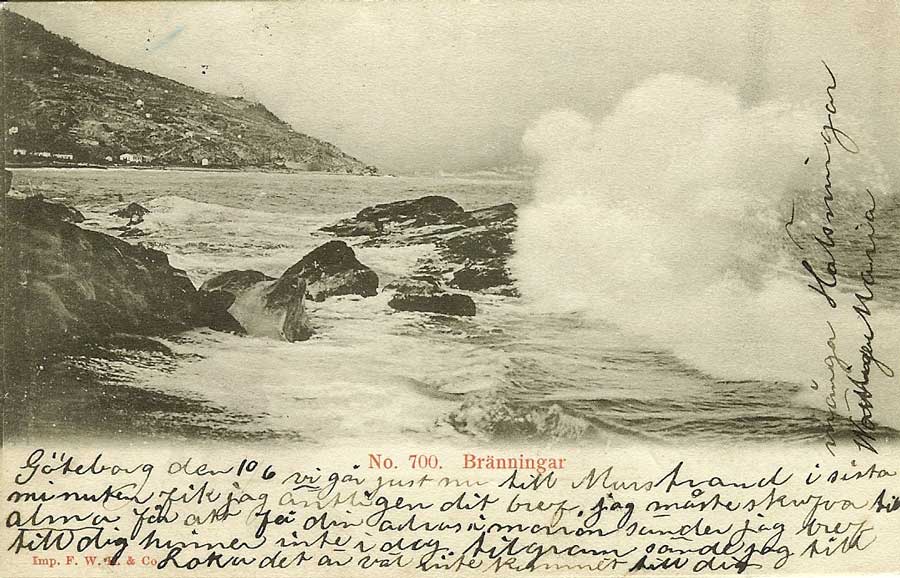 No. 700. Bränningar
Göteborg den 10/6 vi går just nu till Marstrand i sista
minuten fik jag äntligen dit bref. jag måste skrifva till
alma för att få din adress i morron sänder jag bref
till dig hinner inte i dag, tilgram sände jag till
Loka det är väl inte kommet till dig
Imp. F. W. & Co
många Hälsningar
Maria